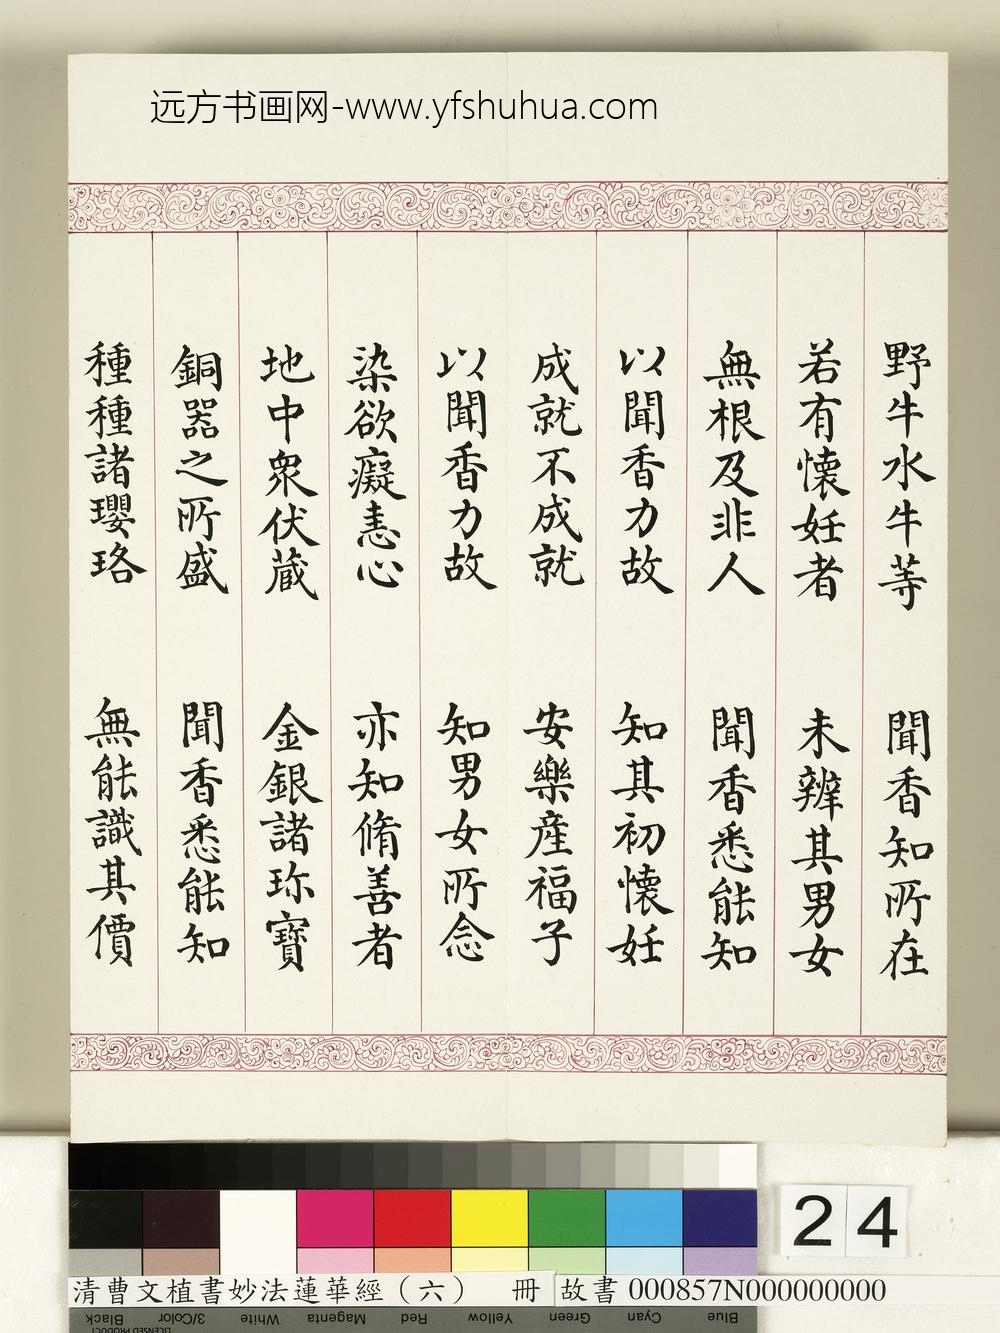 远方书画网-www.yfshuhua.com
野牛水牛等 聞香知所在
若有懐妊者 未辨其男女
無根及非人 聞香悉能知
以聞香力故 知其初懐妊
成就不成就 安樂産福子
以聞香力故 知男女所念
染欲癡恚心 亦知脩善者
地中衆伏蔵 金銀諸珎寶
銅器之所盛 聞香悉能知
種種諸瓔珞 無能識其價
24
清曹文植書妙法蓮華經（六） 冊 故書 000857N000000000
Black 3/Color White Magenta Red Yellow Green Cyan Blue
LICENSED PRODUCT